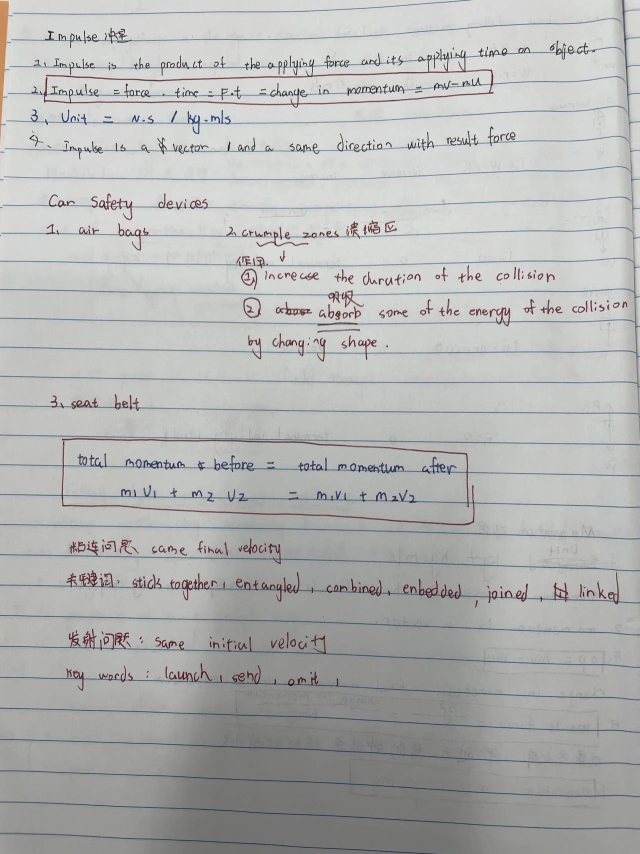 Impulse 冲量
1. Impulse is the product of the applying force and its applying time on object.
2. Impulse = force · time = F·t = change in momentum = mv-mu
3. Unit = N·s / kg·m/s
4. Impulse is a vector / and a same direction with result force
Car safety devices
1. air bags 2. crumple zones 溃缩区
作用
① increase the duration of the collision
吸收
② absorb some of the energy of the collision
by changing shape.
3. seat belt
total momentum before = total momentum after
m1V1 + m2V2 = m1V1 + m2V2
粘连问题、same final velocity
关键词. stick together, entangled, combined, enbedded, joined, linked
发射问题: same initial velocity
key words: launch, send, omit,